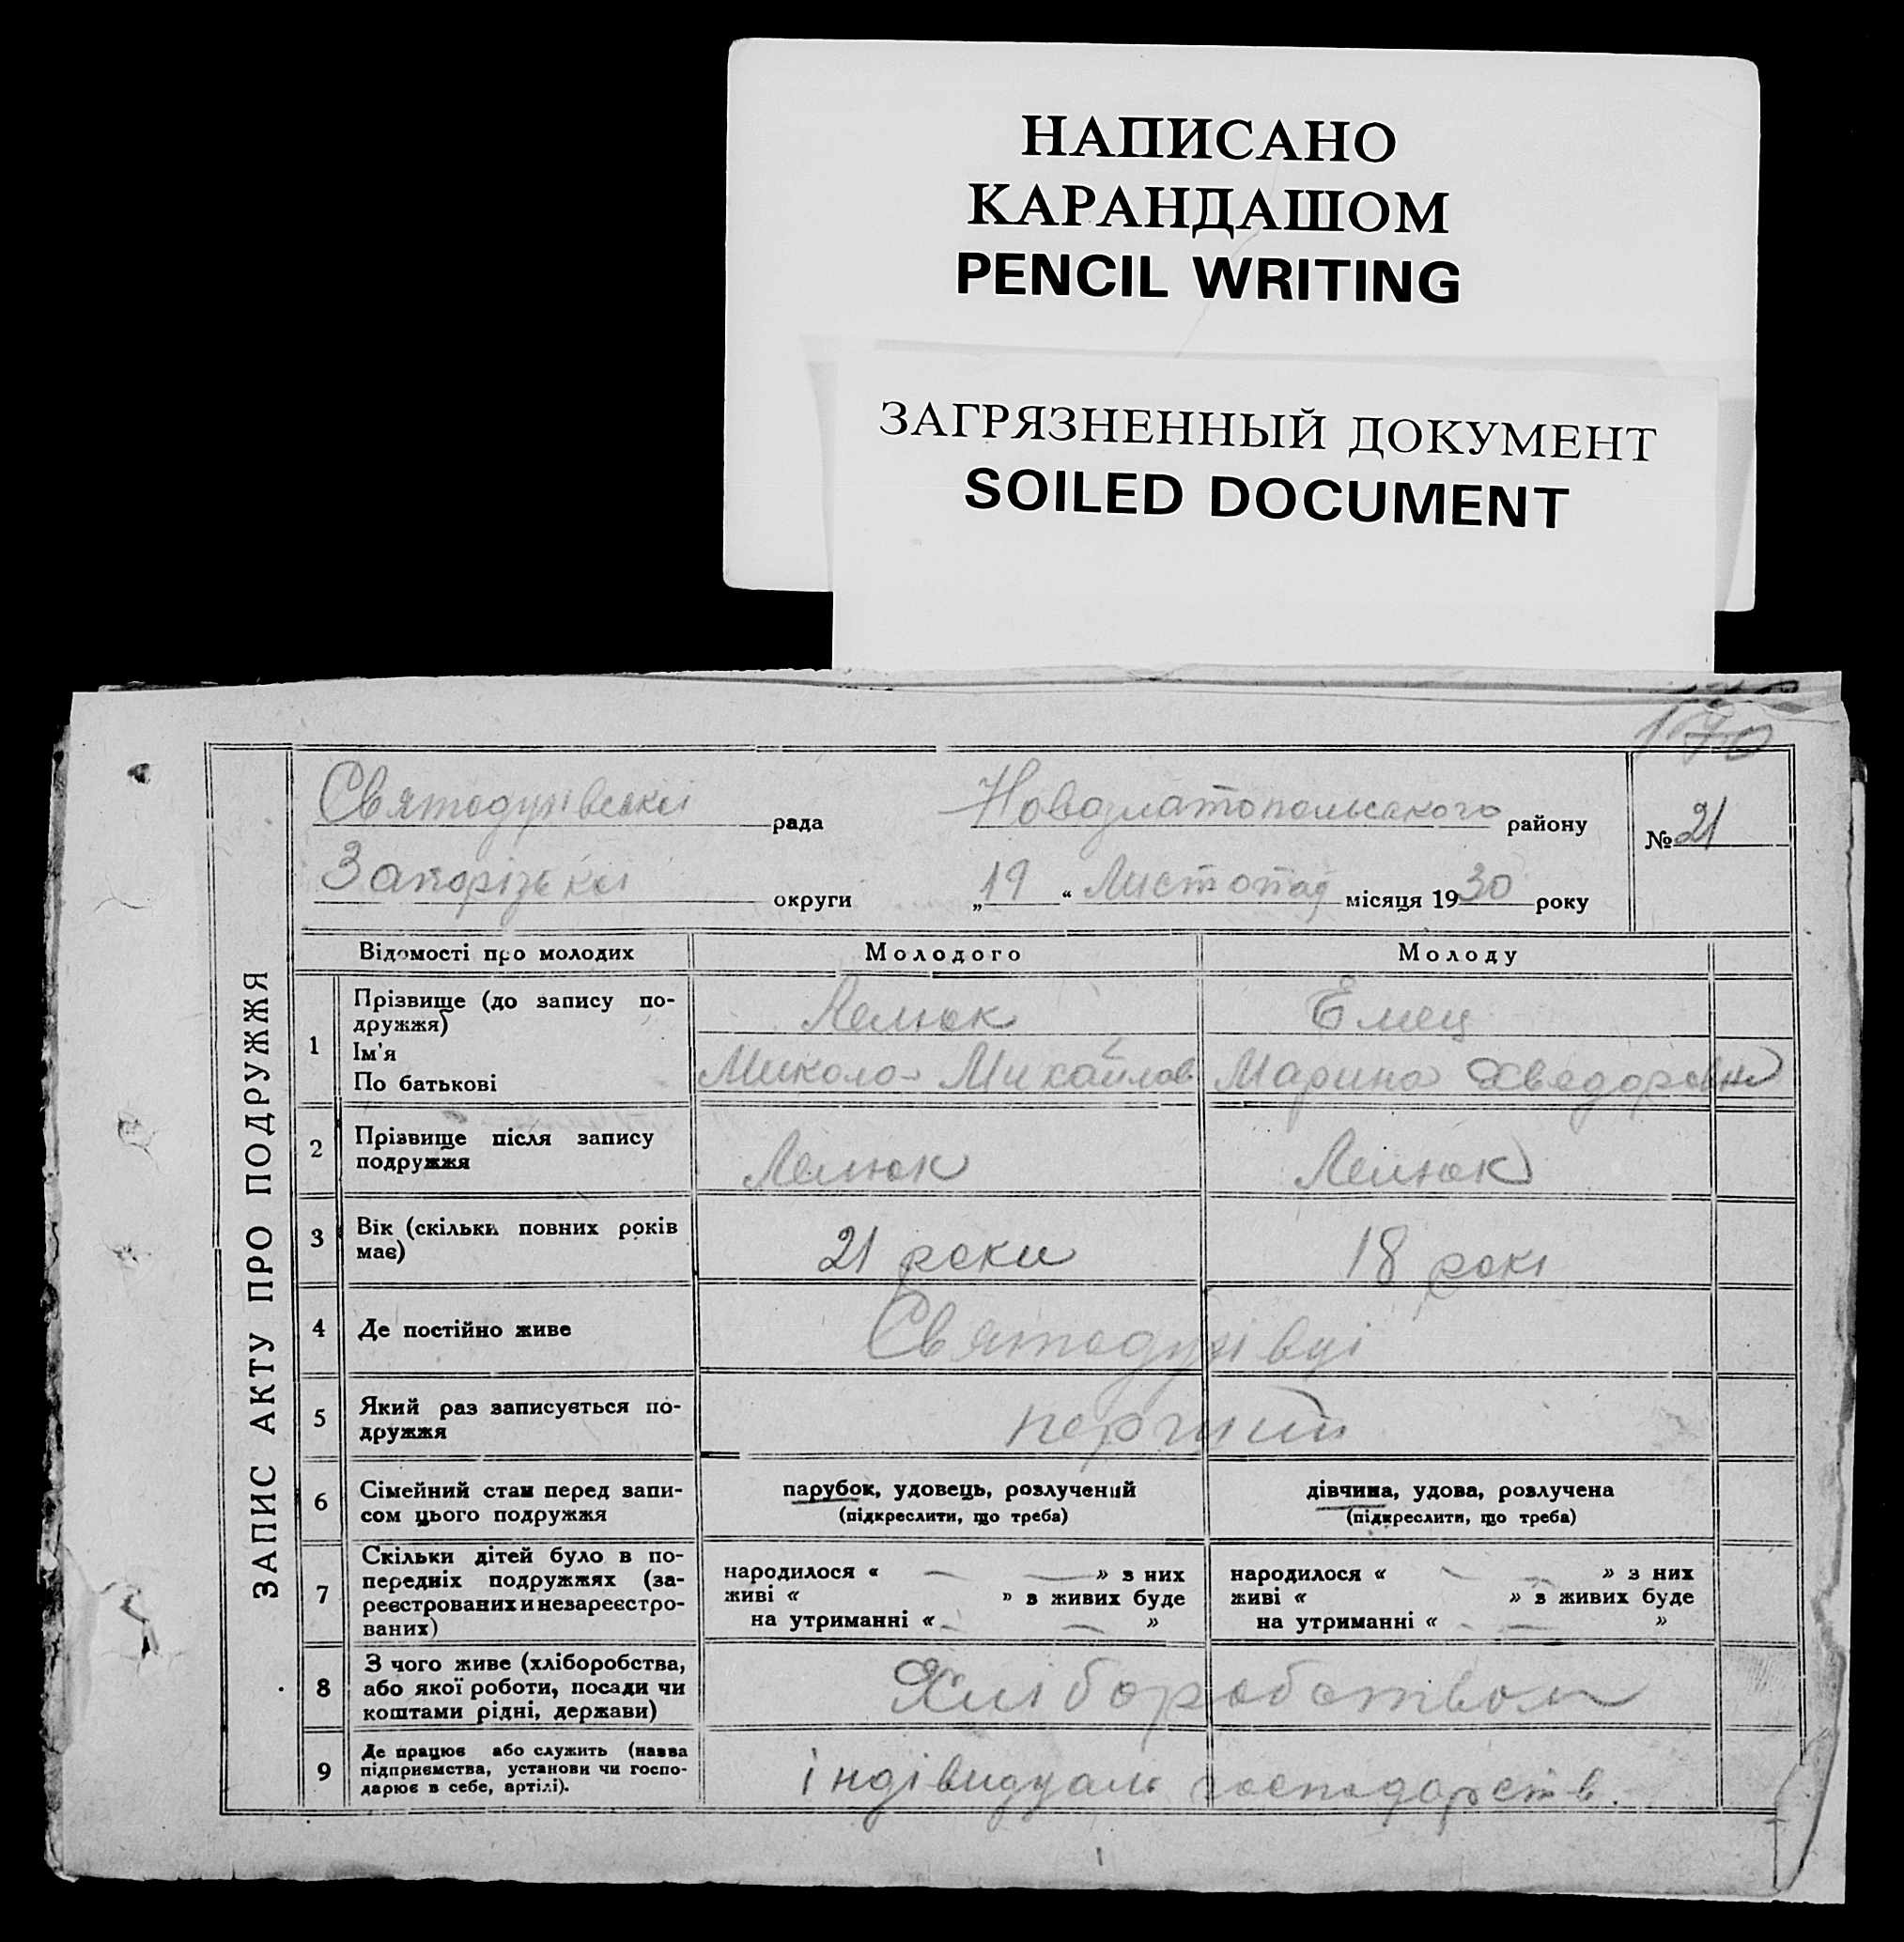 НАПИСАНО
КАРАНДАШОМ
PENCIL WRITING
ЗАГРЯЗНЕННЫЙ ДОКУМЕНТ
SOILED DOCUMENT
170
ЗАПИС АКТУ ПРО ПОДРУЖЖЯ
Святодухівської рада Новозлатопольского району № 21
Запорізької округи „19“ Листопад місяця 1930 року
Відомості про молодих Молодого Молоду
1 Прізвище (до запису по-
дружжя) Лелюк Емец
Ім'я
По батькові Миколо Михайлов Марина Хведоровна
2 Прізвище після запису
подружжя Лелюк Лелюк
3 Вік (скільки повних років
має) 21 роки 18 рокі
4 Де постійно живе Святодухівці
5 Який раз записується по-
дружжя перший
6 Сімейний стан перед запи-
сом цього подружжя парубок, удовець, розлучений дівчина, удова, розлучена
(підкреслити, що треба) (підкреслити, що треба)
7 Скільки дітей було в по-
передніх подружжях (за-
реєстрованих и незареєстро-
ваних)
народилося « — — » з них народилося « — — » з них
живі « » з живих буде живі « » з живих буде
на утриманні « — — » на утриманні « — — »
8 З чого живе (хліборобства,
або якої роботи, посади чи
коштами рідні, держави) Хліборобством
9 Де працює або служить (назва
підприємства, установи чи госпо-
дарює в себе, артілі). індівидуаль господарств.